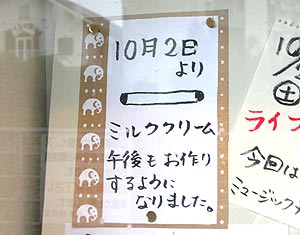 10月2日
より
ミルククリーム
午後もお作り
するように
なりました。
10/
土
ライブ
今回は
ミュージック